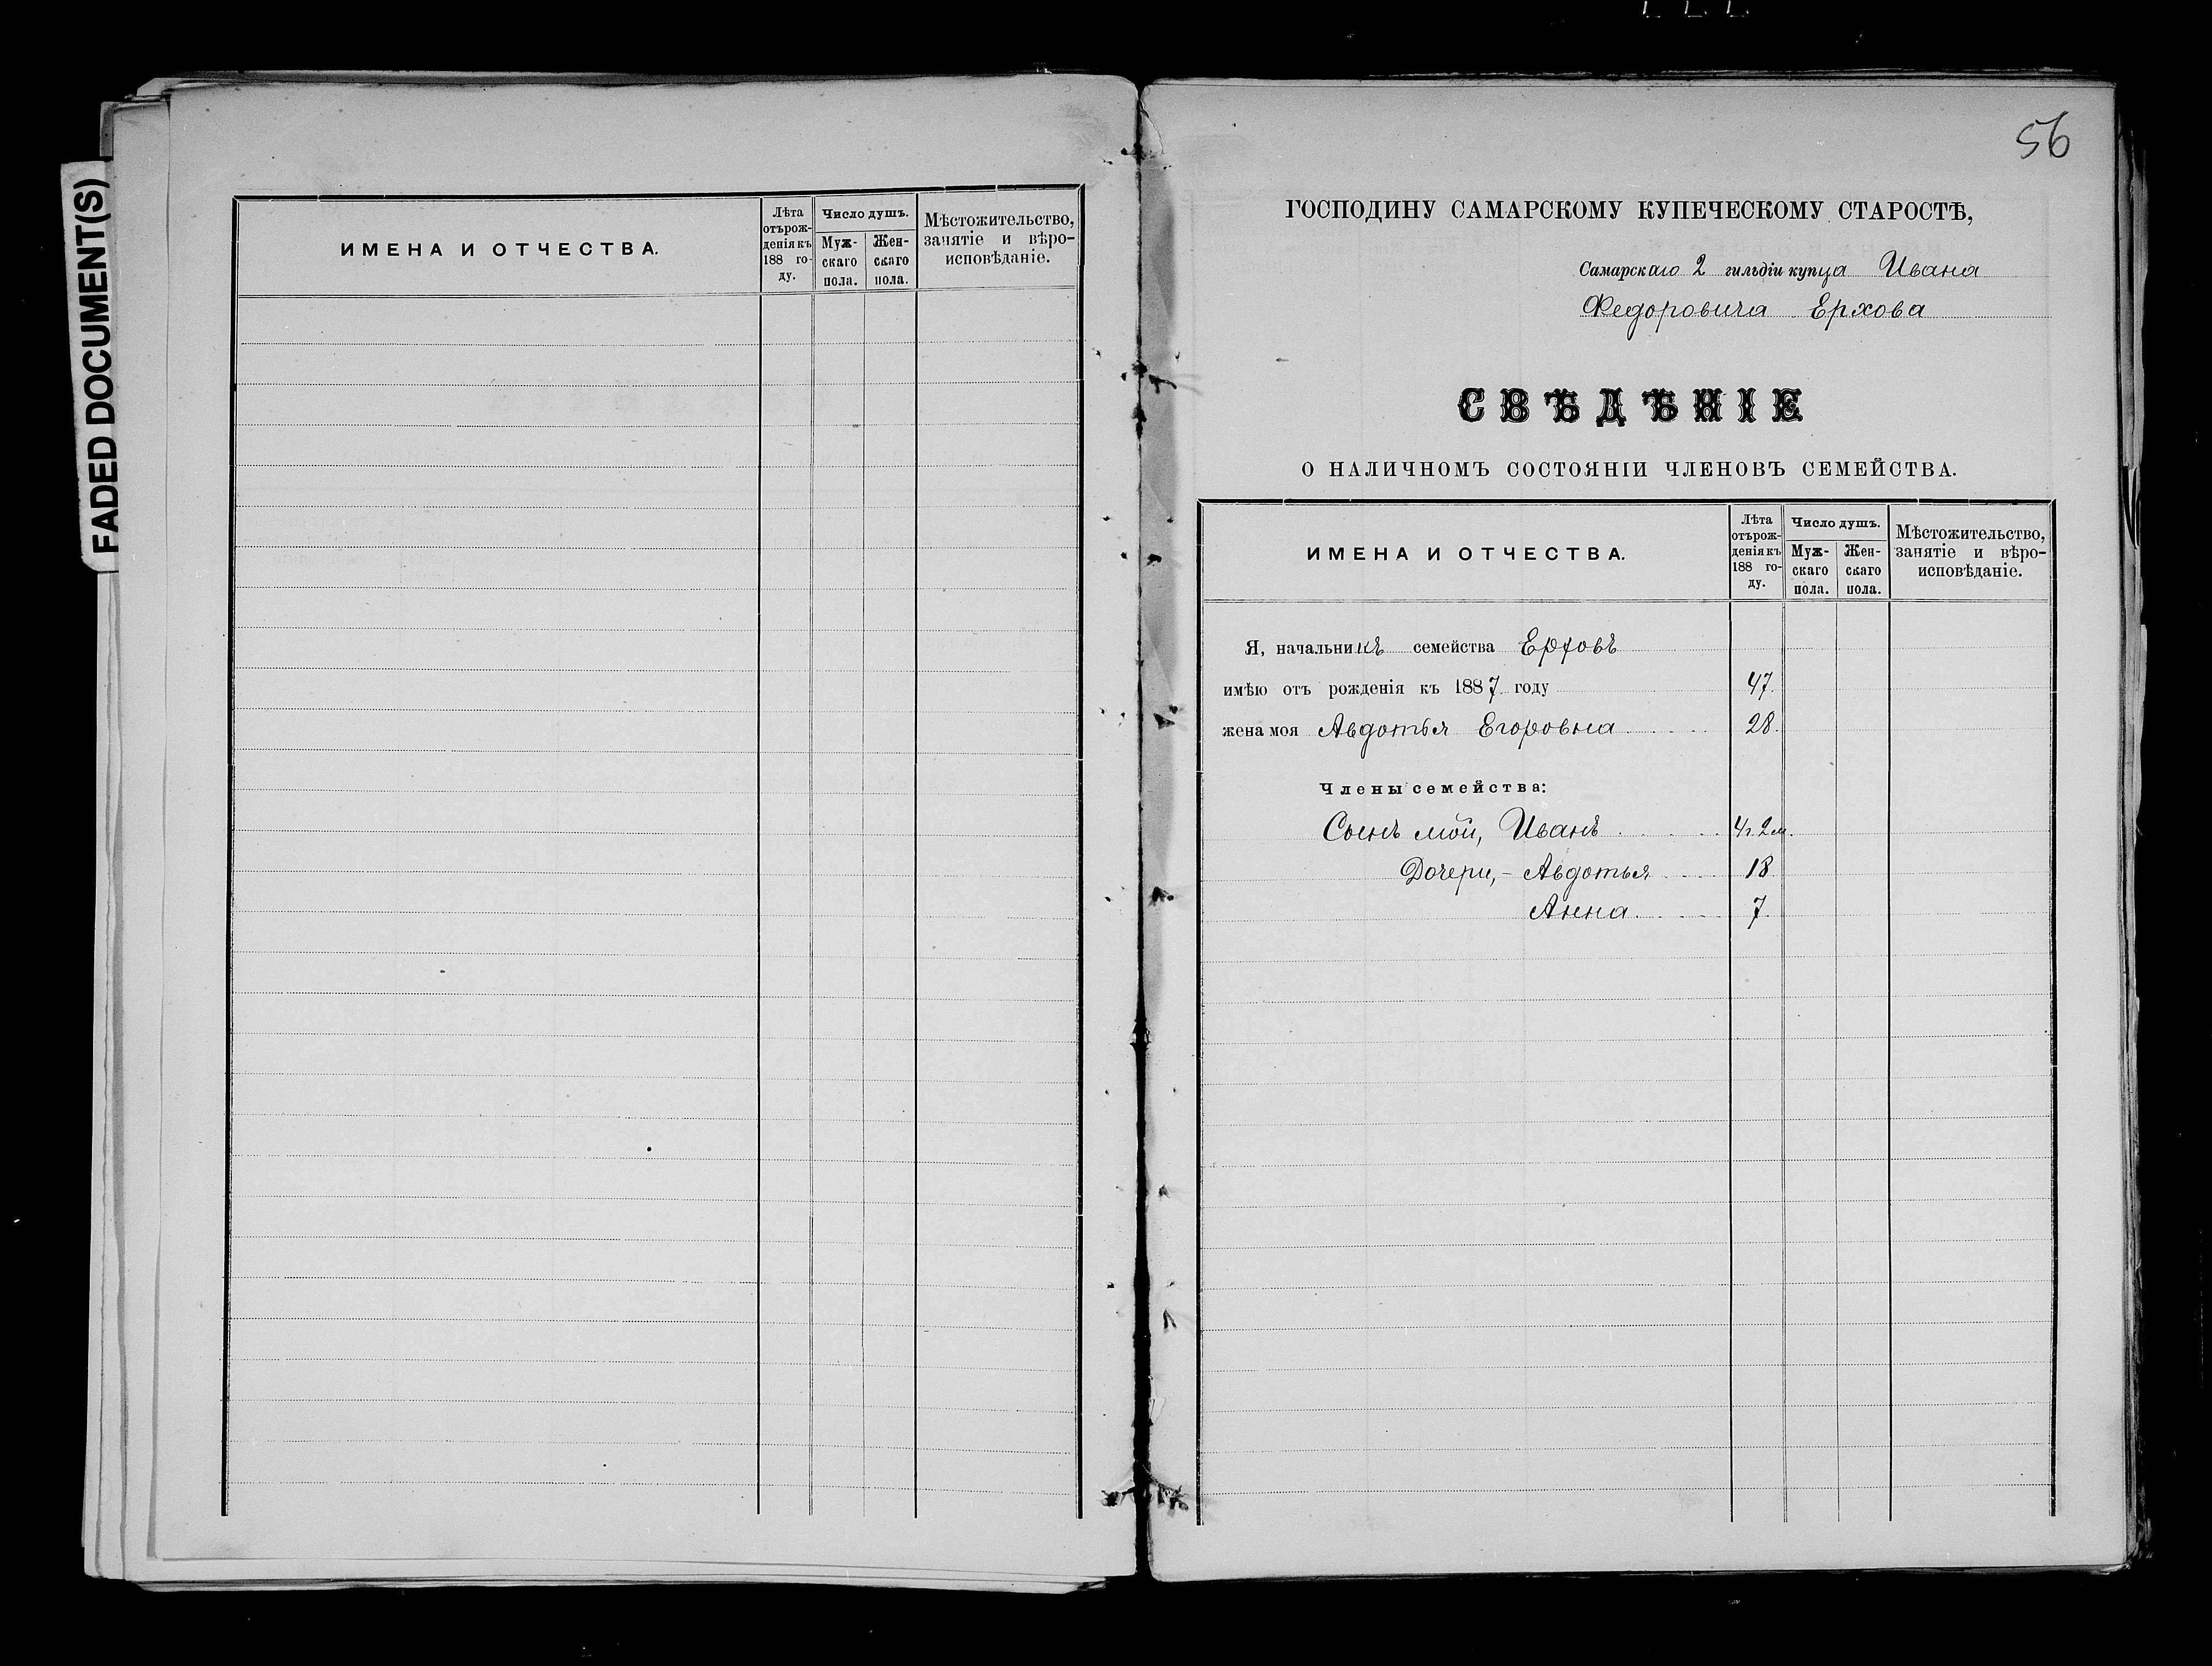 FADED DOCUMENT(S)
ИМЕНА И ОТЧЕСТВА.
Лѣта
отърож-
денія къ
188 го-
ду.
Число душъ.
Муж-
скаго
пола.
Жен-
скаго
пола.
Мѣстожительство,
занятіе и вѣро-
исповѣданіе.
56
ГОСПОДИНУ САМАРСКОМУ КУПЕЧЕСКОМУ СТАРОСТѢ,
Самарскаго 2 гильдіи купца Ивана
Федоровича Ерхова
СВѢДѢНІЕ
О НАЛИЧНОМЪ СОСТОЯНІИ ЧЛЕНОВЪ СЕМЕЙСТВА.
ИМЕНА И ОТЧЕСТВА.
Лѣта
отърож-
денія къ
188 го-
ду.
Число душъ.
Муж-
скаго
пола.
Жен-
скаго
пола.
Мѣстожительство,
занятіе и вѣро-
исповѣданіе.
Я, начальникъ семейства Ерховъ
имѣю отъ рожденія къ 1887 году 47.
жена моя Авдотья Егоровна 28.
Члены семейства:
Сынъ мой, Иванъ 4г. 2м.
Дочери,- Авдотья 18
Анна 7.